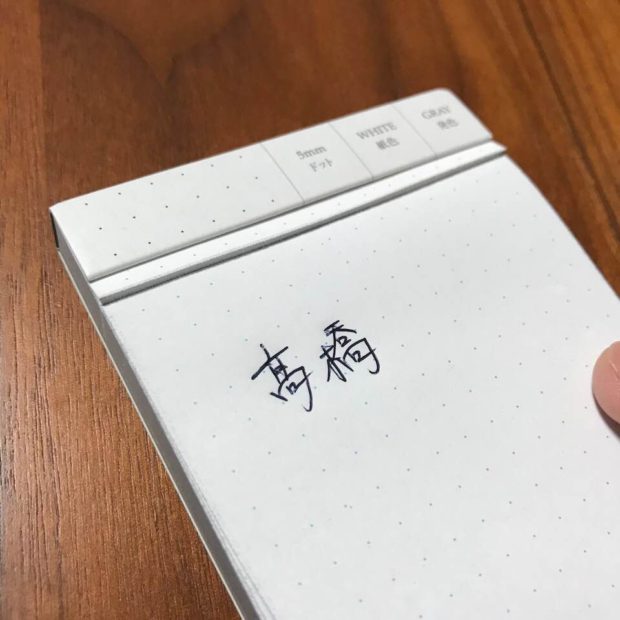 5mm
ドット
WHITE
紙色
GRAY
罫色
髙橋